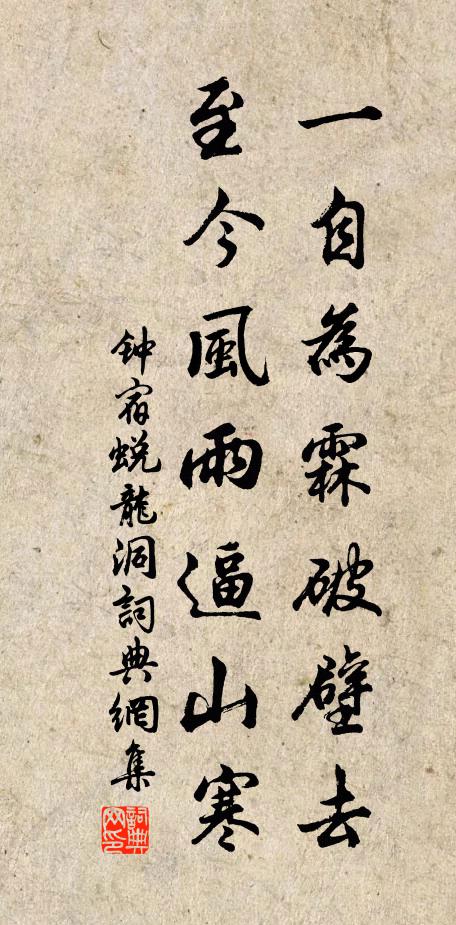 一自為霖破壁去
至今風雨逼山寒
钟宿蜕龍洞詞典網集
詞典網印